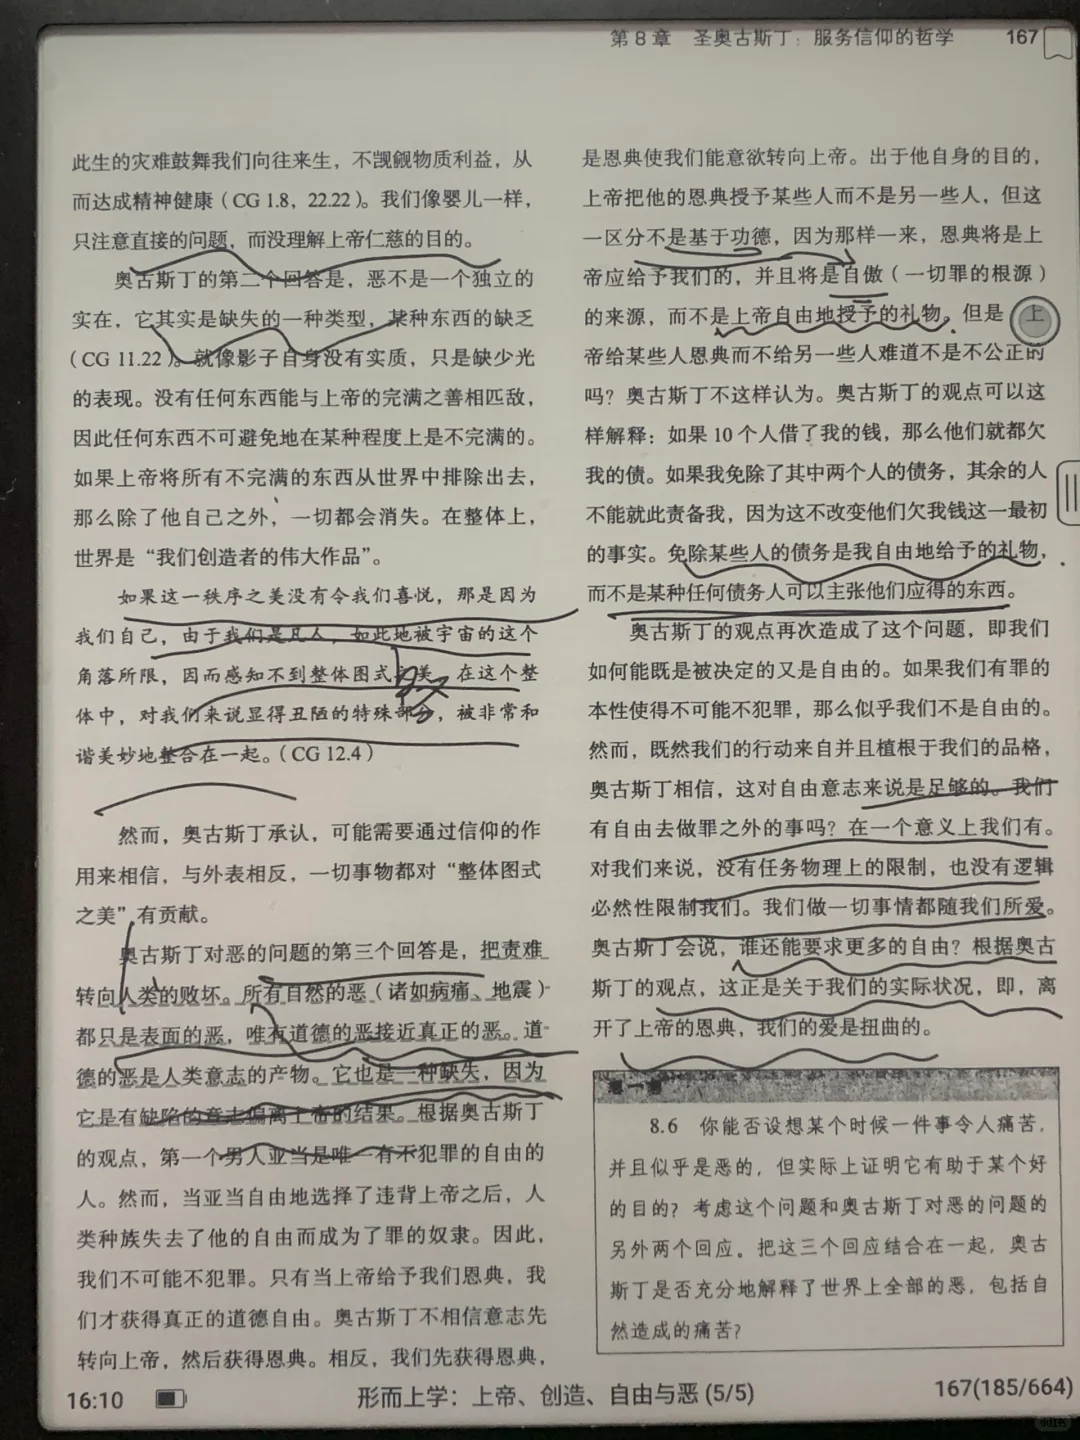 第8章 圣奥古斯丁：服务信仰的哲学 167
此生的灾难鼓舞我们向往来生，不觊觎物质利益，从
而达成精神健康（CG 1.8，22.22）。我们像婴儿一样，
只注意直接的问题，而没理解上帝仁慈的目的。
奥古斯丁的第二个回答是，恶不是一个独立的
实在，它其实是缺失的一种类型，某种东西的缺乏
（CG 11.22）。就像影子自身没有实质，只是缺少光
的表现。没有任何东西能与上帝的完满之善相匹敌，
因此任何东西不可避免地在某种程度上是不完满的。
如果上帝将所有不完满的东西从世界中排除出去，
那么除了他自己之外，一切都会消失。在整体上，
世界是“我们创造者的伟大作品”。
如果这一秩序之美没有令我们喜悦，那是因为
我们自己，由于我们是凡人，如此地被宇宙的这个
角落所限，因而感知不到整体图式之美。在这个整
体中，对我们来说显得丑陋的特殊部分，被非常和
谐美妙地整合在一起。（CG 12.4）
然而，奥古斯丁承认，可能需要通过信仰的作
用来相信，与外表相反，一切事物都对“整体图式
之美”有贡献。
奥古斯丁对恶的问题的第三个回答是，把责难
转向人类的败坏。所有自然的恶（诸如病痛、地震）
都只是表面的恶，唯有道德的恶接近真正的恶。道
德的恶是人类意志的产物。它也是一种缺失，因为
它是有缺陷的意志偏离上帝的结果。根据奥古斯丁
的观点，第一个男人亚当是唯一有不犯罪的自由的
人。然而，当亚当自由地选择了违背上帝之后，人
类种族失去了他的自由而成为了罪的奴隶。因此，
我们不可能不犯罪。只有当上帝给予我们恩典，我
们才获得真正的道德自由。奥古斯丁不相信意志先
转向上帝，然后获得恩典。相反，我们先获得恩典，
是恩典使我们能意欲转向上帝。出于他自身的目的，
上帝把他的恩典授予某些人而不是另一些人，但这
一区分不是基于功德，因为那样一来，恩典将是上
帝应给予我们的，并且将是自傲（一切罪的根源）
的来源，而不是上帝自由地授予的礼物。但是，上
帝给某些人恩典而不给另一些人难道不是不公正的
吗？奥古斯丁不这样认为。奥古斯丁的观点可以这
样解释：如果 10 个人借了我的钱，那么他们就都欠
我的债。如果我免除了其中两个人的债务，其余的人
不能就此责备我，因为这不改变他们欠我钱这一最初
的事实。免除某些人的债务是我自由地给予的礼物，
而不是某种任何债务人可以主张他们应得的东西。
奥古斯丁的观点再次造成了这个问题，即我们
如何能既是被决定的又是自由的。如果我们有罪的
本性使得不可能不犯罪，那么似乎我们不是自由的。
然而，既然我们的行动来自并且植根于我们的品格，
奥古斯丁相信，这对自由意志来说是足够的。我们
有自由去做罪之外的事吗？在一个意义上我们有。
对我们来说，没有任务物理上的限制，也没有逻辑
必然性限制我们。我们做一切事情都随我们所爱。
奥古斯丁会说，谁还能要求更多的自由？根据奥古
斯丁的观点，这正是关于我们的实际状况，即，离
开了上帝的恩典，我们的爱是扭曲的。
想一想
8.6 你能否设想某个时候一件事令人痛苦，
并且似乎是恶的，但实际上证明它有助于某个好
的目的？考虑这个问题和奥古斯丁对恶的问题的
另外两个回应。把这三个回应结合在一起，奥古
斯丁是否充分地解释了世界上全部的恶，包括自
然造成的痛苦？
16:10 形而上学：上帝、创造、自由与恶 (5/5) 167(185/664)